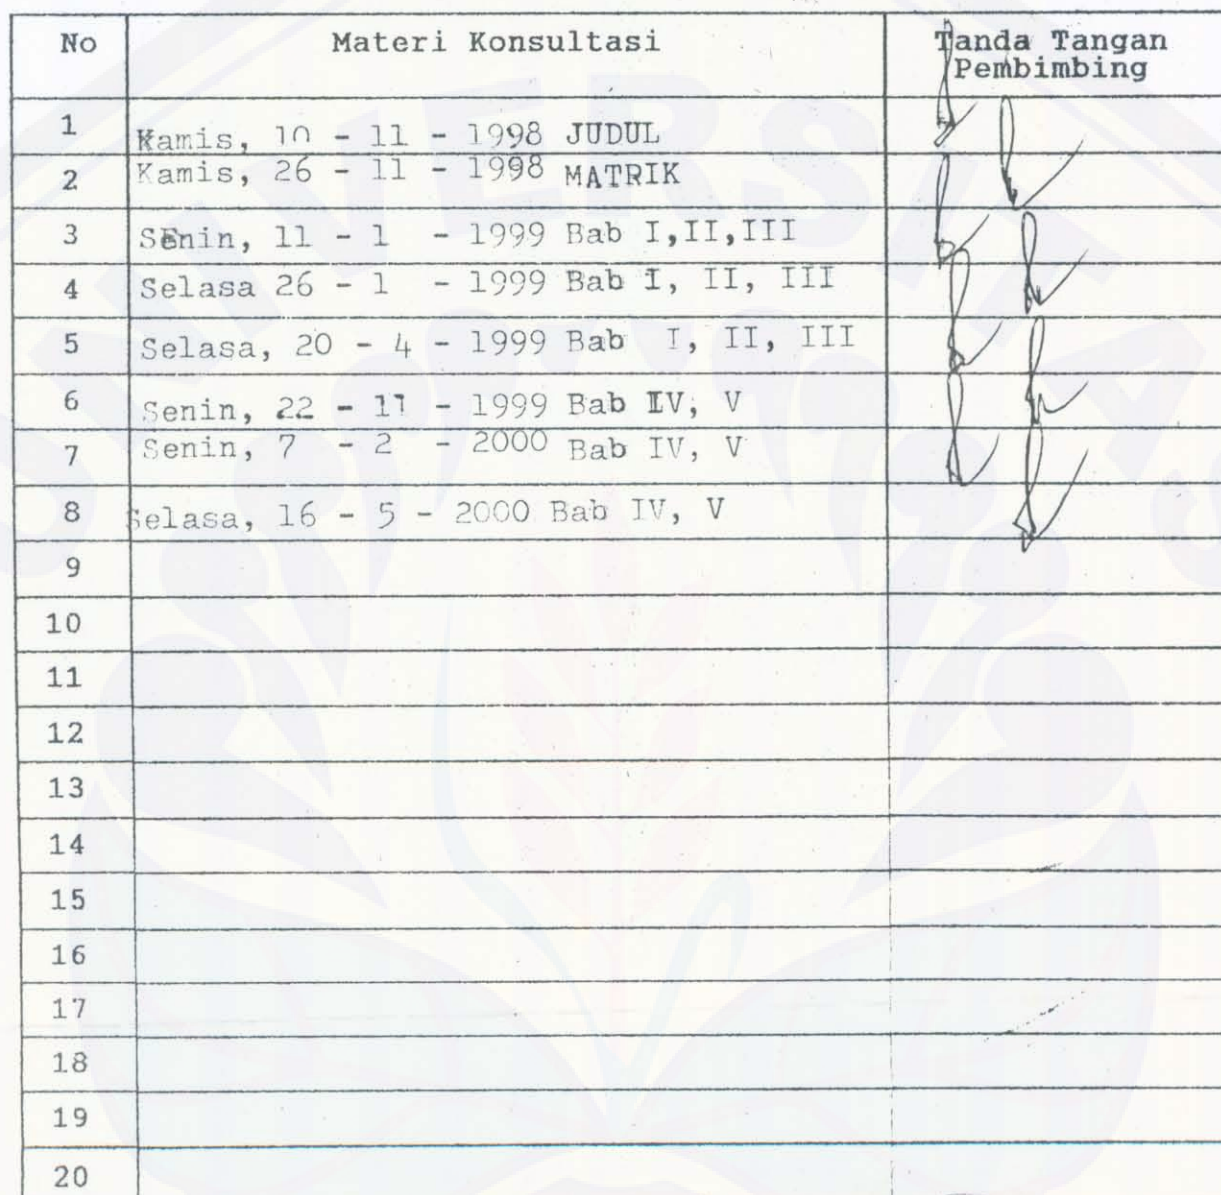 No Materi Konsultasi Tanda Tangan
Pembimbing
1 Kamis, 10 - 11 - 1998 JUDUL
2 Kamis, 26 - 11 - 1998 MATRIK
3 SEnin, 11 - 1 - 1999 Bab I,II,III
4 Selasa 26 - 1 - 1999 Bab I, II, III
5 Selasa, 20 - 4 - 1999 Bab I, II, III
6 Senin, 22 - 11 - 1999 Bab IV, V
7 Senin, 7 - 2 - 2000 Bab IV, V
8 Selasa, 16 - 5 - 2000 Bab IV, V
9
10
11
12
13
14
15
16
17
18
19
20
UNIVERSITAS